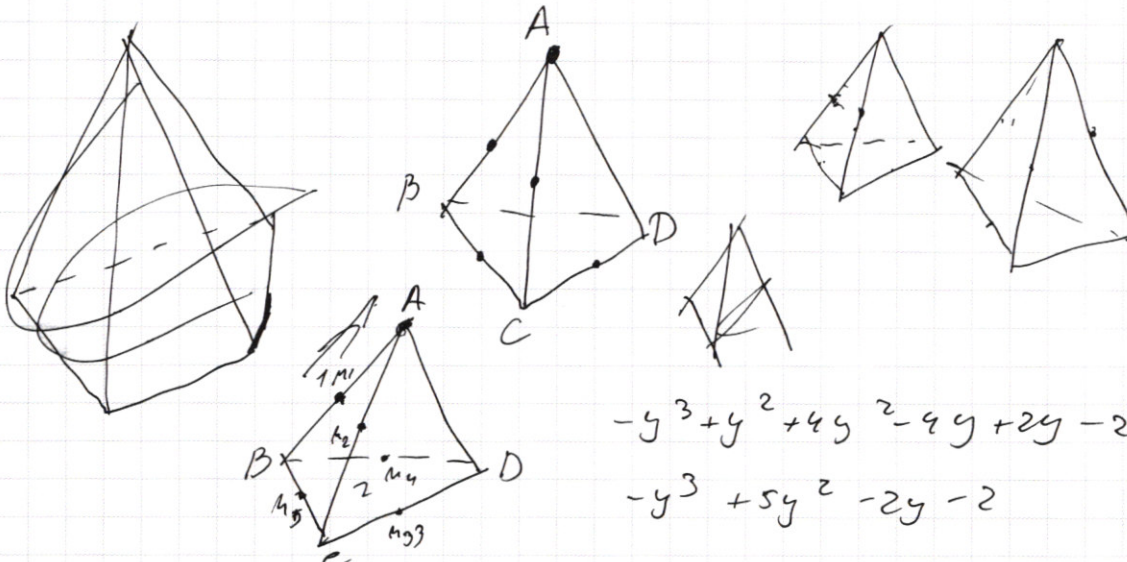 A
B
D
C
A
1 M1
M2
B
M4
D
2
M5
-y³ + y² + 4y² - 4y + 2y - 2
-y³ + 5y² - 2y - 2